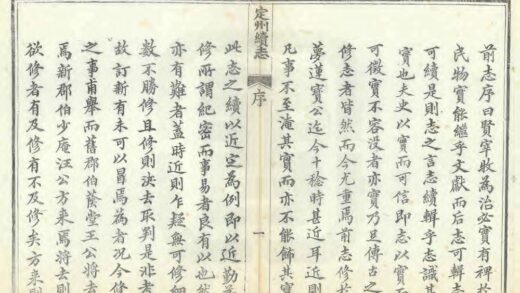 前志序曰賢宰牧為治必實有裨於
民物實能繼乎文獻而后志可輯志
可續是則志之言志續輯乎志識其
實也夫史以實而可信即志以實而
可徵實不容没者亦實乃足傳古之
修志者皆然而今尤重焉前志修於
夢蓮寶公迄今十稔時甚近耳近則
凡事不至淹其實而亦不能飾其實
定州續志
序
一
此志之續以近定為例即以近勤
修所謂紀密而事易者良有以也然
亦有難者蓋時近則乍疑無可修細
數不勝修且修則決去取判是非考
故訂新有未可以冒焉為者况今修
之事甫舉而舊郡伯蔭堂王公將去
焉新郡伯少庵汪公方來焉將去則
欲修者有及修有不及修矣方來則